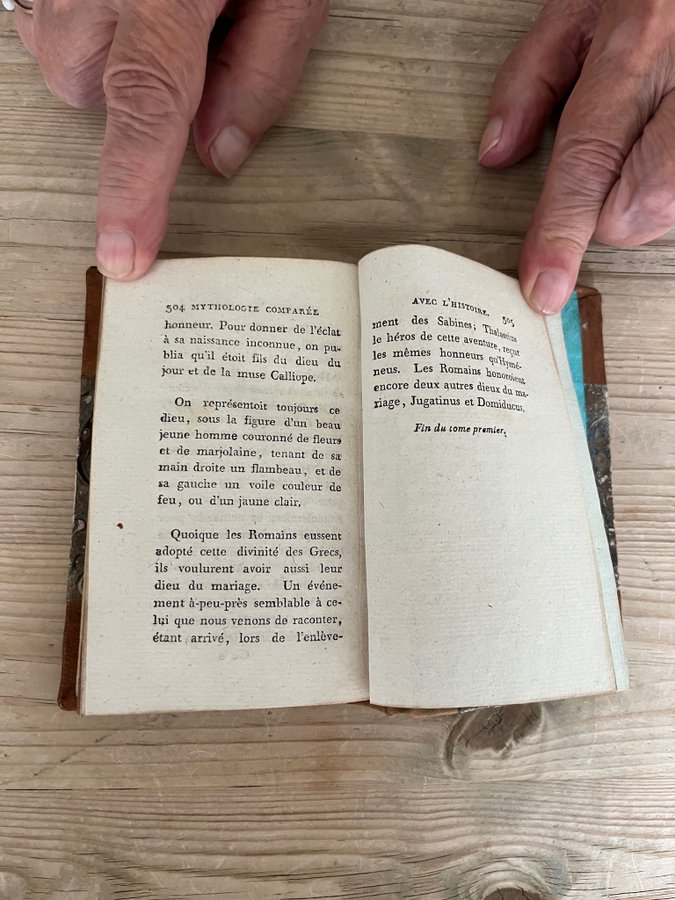 304 MYTHOLOGIE COMPARÉE
honneur. Pour donner de l'éclat
à sa naissance inconnue, on pu-
blia qu'il étoit fils du dieu du
jour et de la muse Calliope.
On représentoit toujours ce
dieu, sous la figure d'un beau
jeune homme couronné de fleurs
et de marjolaine, tenant de sa
main droite un flambeau, et de
sa gauche un voile couleur de
feu, ou d'un jaune clair.
Quoique les Romains eussent
adopté cette divinité des Grecs,
ils voulurent avoir aussi leur
dieu du mariage. Un événe-
ment à-peu-près semblable à ce-
lui que nous venons de raconter,
étant arrivé, lors de l'enlève-
AVEC L'HISTOIRE. 305
ment des Sabines; Thalassius
le héros de cette aventure, reçut
les mêmes honneurs qu'Hymé-
neus. Les Romains honoroient
encore deux autres dieux du ma-
riage, Jugatinus et Domiducus.
Fin du tome premier.